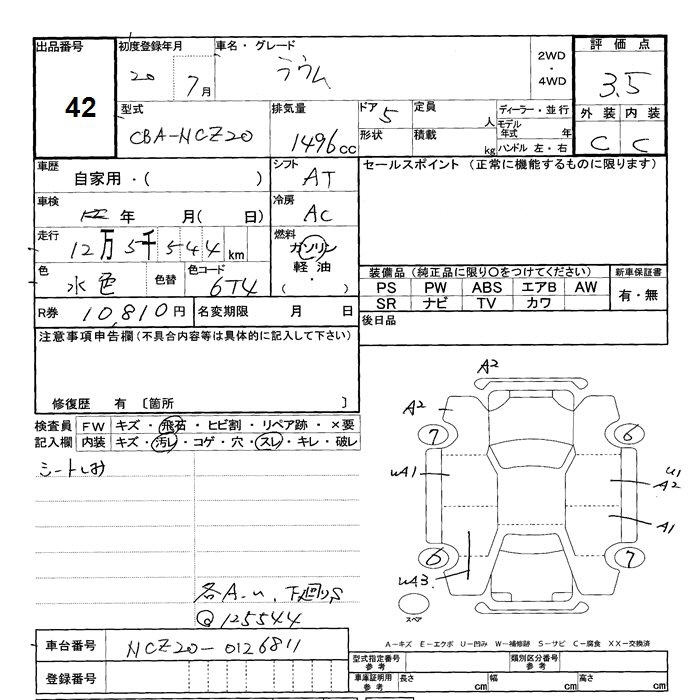 出品番号 初度登録年月 車名・グレード 2WD・4WD 評価点
42 20 7月 ラウム 3.5
型式 排気量 ドア 5 定員 人 ディーラー・並行 外装 内装
CBA-NCZ20 1496cc 形状 積載 kg モデル年式 年 C C
ハンドル 左・右
車歴 シフト セールスポイント (正常に機能するものに限ります)
自家用・( ) AT
車検 冷房
年 月( 日) AC
走行 燃料
12万5千544km ガソリン
軽油
・( )
色 色替 色コード
水色 6T4
装備品(純正品に限り○をつけてください) 新車保証書
PS PW ABS エアB AW 有・無
SR ナビ TV カワ
R券 10,810円 名変期限 月 日 後日品
注意事項申告欄(不具合内容等は具体的に記入して下さい)
修復歴 有 〔箇所 〕
検査員 FW キズ・飛石・ヒビ割・リペア跡・×要
記入欄 内装 キズ・汚レ・コゲ・穴・スレ・キレ・破レ
シートしみ
A2
A2
7 6
uA1 u1
A2
A1
6 7
uA3
スペア
各A-u、下廻りS
Q125544
A-キズ E-エクボ U-凹み W-補修跡 S-サビ C-腐食 XX-交換済
車台番号 NCZ20-0126811
登録番号
型式指定番号 参考 類別区分番号 参考
車庫証明用 参考 長さ cm 幅 cm 高さ cm